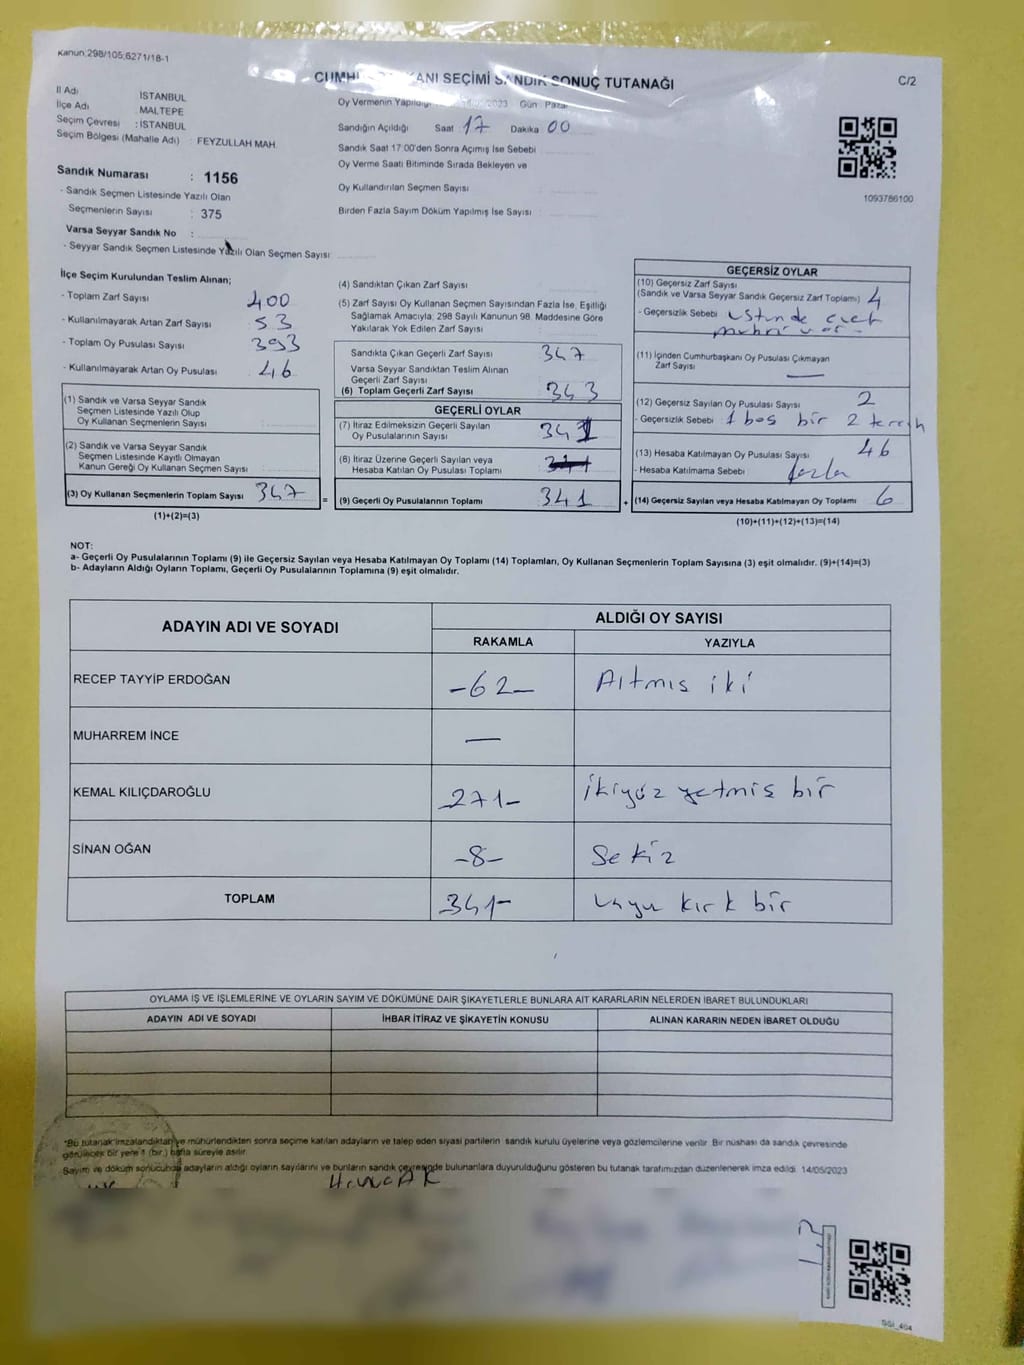 Kanun:298/105;6271/18-1
SEÇİMİ SANDIK SONUÇ TUTANAĞI
C/2
İl Adı : İSTANBUL
İlçe Adı : MALTEPE
Seçim Çevresi : İSTANBUL
Seçim Bölgesi (Mahalle Adı) : FEYZULLAH MAH.
Sandık Numarası : 1156
- Sandık Seçmen Listesinde Yazılı Olan
Seçmenlerin Sayısı : 375
Varsa Seyyar Sandık No :
- Seyyar Sandık Seçmen Listesinde Yazılı Olan Seçmen Sayısı :
Oy Vermenin Yapıldığı 2023 Gün: Pazar
Sandığın Açıldığı Saat : 17 Dakika 00
Sandık Saat 17:00'den Sonra Açımış İse Sebebi
Oy Verme Saati Bitiminde Sırada Bekleyen ve
Oy Kullandırılan Seçmen Sayısı :
Birden Fazla Sayım Döküm Yapılmış İse Sayısı :
1093786100
İlçe Seçim Kurulundan Teslim Alınan;
- Toplam Zarf Sayısı : 400
- Kullanılmayarak Artan Zarf Sayısı : 53
- Toplam Oy Pusulası Sayısı : 393
- Kullanılmayarak Artan Oy Pusulası : 46
(1) Sandık ve Varsa Seyyar Sandık
Seçmen Listesinde Yazılı Olup
Oy Kullanan Seçmenlerin Sayısı :
(2) Sandık ve Varsa Seyyar Sandık
Seçmen Listesinde Kayıtlı Olmayan
Kanun Gereği Oy Kullanan Seçmen Sayısı :
(3) Oy Kullanan Seçmenlerin Toplam Sayısı : 347
(1)+(2)=(3)
(4) Sandıktan Çıkan Zarf Sayısı :
(5) Zarf Sayısı Oy Kullanan Seçmen Sayısından Fazla İse, Eşitliği
Sağlamak Amacıyla; 298 Sayılı Kanunun 98. Maddesine Göre
Yakılarak Yok Edilen Zarf Sayısı :
Sandıkta Çıkan Geçerli Zarf Sayısı : 347
Varsa Seyyar Sandıktan Teslim Alınan
Geçerli Zarf Sayısı :
(6) Toplam Geçerli Zarf Sayısı : 343
GEÇERLİ OYLAR
(7) İtiraz Edilmeksizin Geçerli Sayılan
Oy Pusulalarının Sayısı : 341
(8) İtiraz Üzerine Geçerli Sayılan veya
Hesaba Katılan Oy Pusulası Toplamı :
= (9) Geçerli Oy Pusulalarının Toplamı : 341 +
GEÇERSİZ OYLAR
(10) Geçersiz Zarf Sayısı
(Sandık ve Varsa Seyyar Sandık Geçersiz Zarf Toplamı) : 4
- Geçersizlik Sebebi : üstünde evet
mührü var.
(11) İçinden Cumhurbaşkanı Oy Pusulası Çıkmayan
Zarf Sayısı : —
(12) Geçersiz Sayılan Oy Pusulası Sayısı : 2
- Geçersizlik Sebebi : 1 boş bir 2 tercih
(13) Hesaba Katılmayan Oy Pusulası Sayısı : 46
- Hesaba Katılmama Sebebi : fazla
(14) Geçersiz Sayılan veya Hesaba Katılmayan Oy Toplamı : 6
(10)+(11)+(12)+(13)=(14)
NOT:
a- Geçerli Oy Pusulalarının Toplamı (9) ile Geçersiz Sayılan veya Hesaba Katılmayan Oy Toplamı (14) Toplamları, Oy Kullanan Seçmenlerin Toplam Sayısına (3) eşit olmalıdır. (9)+(14)=(3)
b- Adayların Aldığı Oyların Toplamı, Geçerli Oy Pusulalarının Toplamına (9) eşit olmalıdır.
ADAYIN ADI VE SOYADI
ALDIĞI OY SAYISI
RAKAMLA YAZIYLA
RECEP TAYYİP ERDOĞAN -62- Altmış iki
MUHARREM İNCE —
KEMAL KILIÇDAROĞLU 271- ikiyüz yetmiş bir
SİNAN OĞAN -8- Sekiz
TOPLAM 341- kırk bir
OYLAMA İŞ VE İŞLEMLERİNE VE OYLARIN SAYIM VE DÖKÜMÜNE DAİR ŞİKAYETLERLE BUNLARA AİT KARARLARIN NELERDEN İBARET BULUNDUKLARI
ADAYIN ADI VE SOYADI İHBAR İTİRAZ VE ŞİKAYETİN KONUSU ALINAN KARARIN NEDEN İBARET OLDUĞU
*Bu tutanak imzalandıktan ve mühürlendikten sonra seçime katılan adayların ve talep eden siyasi partilerin sandık kurulu üyelerine veya gözlemcilerine verilir. Bir nüshası da sandık çevresinde
görülecek bir yere 1 (bir) hafta süreyle asılır.
Sayım ve döküm sonucunda adayların aldığı oyların sayılarını ve bunların sandık çevresinde bulunanlara duyurulduğunu gösteren bu tutanak tarafımızdan düzenlenerek imza edildi. 14/05/2023